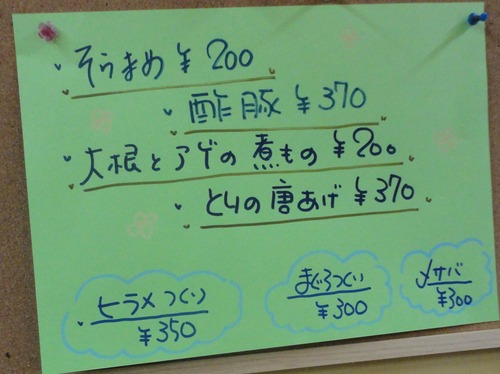 そらまめ ¥200
酢豚 ¥370
大根とアゲの煮もの ¥200
とりの唐あげ ¥370
ヒラメつくり
¥350
まぐろつくり
¥300
メサバ
¥300